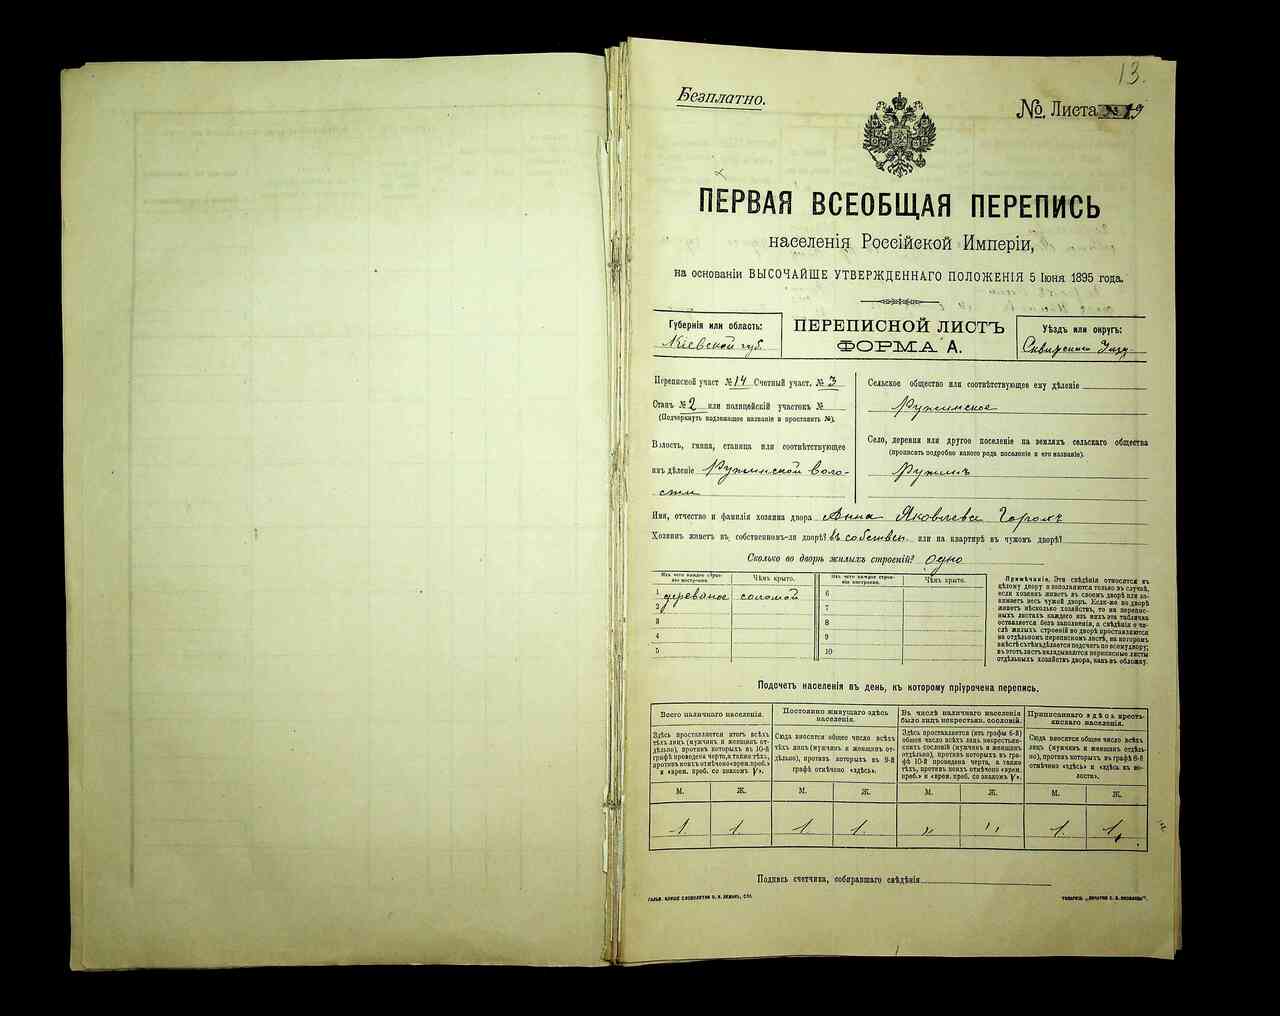 13.
Безплатно.
№. Листа 19
ПЕРВАЯ ВСЕОБЩАЯ ПЕРЕПИСЬ
населенія Россійской Имперіи,
на основаніи ВЫСОЧАЙШЕ УТВЕРЖДЕННАГО ПОЛОЖЕНІЯ 5 Іюня 1895 года.
Губернія или область:
Кіевской губ.
ПЕРЕПИСНОЙ ЛИСТЪ
ФОРМА А.
Уѣздъ или округъ:
Сквирскаго Уѣзд
Переписной участ. № 14 Счетный участ. № 3
Станъ № 2 или полицейскій участокъ №
(Подчеркнуть надлежащее названіе и проставить №).
Волость, гмина, станица или соотвѣтствующее
имъ дѣленіе Ружинской воло-
сти
Сельское общество или соотвѣтствующее ему дѣленіе
Ружинское
Село, деревня или другое поселеніе на земляхъ сельскаго общества
(прописать подробно какого рода поселеніе и его названіе).
Ружинъ
Имя, отчество и фамилія хозяина двора Анна Яковлева
Хозяинъ живетъ въ собственномъ-ли дворѣ? въ собствен. или на квартирѣ въ чужомъ дворѣ?
Сколько во дворѣ жилыхъ строеній? одно
Изъ чего каждое строе-
ніе построено.
Чѣмъ крыто.
Изъ чего каждое строе-
ніе построено.
Чѣмъ крыто.
1 деревяное соломой
2
3
4
5
6
7
8
9
10
Примѣчаніе. Эти свѣдѣнія относятся къ
цѣлому двору и заполняются только въ случаѣ,
если хозяинъ живетъ въ своемъ дворѣ или за-
нимаетъ весь чужой дворъ. Если-же во дворѣ
живетъ нѣсколько хозяйствъ, то на перепис-
ныхъ листахъ каждаго изъ нихъ эта табличка
оставляется безъ заполненія, а свѣдѣнія о чи-
слѣ жилыхъ строеній во дворѣ проставляются
на отдѣльномъ переписномъ листѣ, на которомъ
вмѣстѣ съ тѣмъ дѣлается подсчетъ по всему двору;
въ этотъ листъ вкладываются переписные листы
отдѣльныхъ хозяйствъ двора, какъ въ обложку.
Подсчетъ населенія въ день, къ которому пріурочена перепись.
Всего наличнаго населенія.
Здѣсь проставляется итогъ всѣхъ
тѣхъ лицъ (мужчинъ и женщинъ от-
дѣльно), противъ которыхъ въ 10-й
графѣ проведена черта, а также тѣхъ,
противъ коихъ отмѣчено «врем. преб.»
и «врем. преб. со знакомъ V».
Постоянно живущаго здѣсь
населенія.
Сюда вносится общее число всѣхъ
тѣхъ лицъ (мужчинъ и женщинъ от-
дѣльно), противъ которыхъ въ 9-й
графѣ отмѣчено «здѣсь».
Въ числѣ наличнаго населенія
было лицъ некрестьян. сословій.
Здѣсь проставляется (изъ графы 6-й)
общее число всѣхъ лицъ некрестьян-
скихъ сословій (мужчинъ и женщинъ
отдѣльно), противъ которыхъ въ гра-
фѣ 10-й проведена черта, а также
тѣхъ, противъ коихъ отмѣчено «врем.
преб.» и «врем. преб. со знакомъ V».
Приписаннаго здѣсь кресть-
янскаго населенія.
Сюда вносится общее число всѣхъ
лицъ (мужчинъ и женщинъ отдѣль-
но), противъ которыхъ въ графѣ 8-й
отмѣчено «здѣсь» и «здѣсь къ во-
лости».
М. Ж. М. Ж. М. Ж. М. Ж.
1 1 1 1 " " 1 1
Подпись счетчика, собиравшаго свѣдѣнія